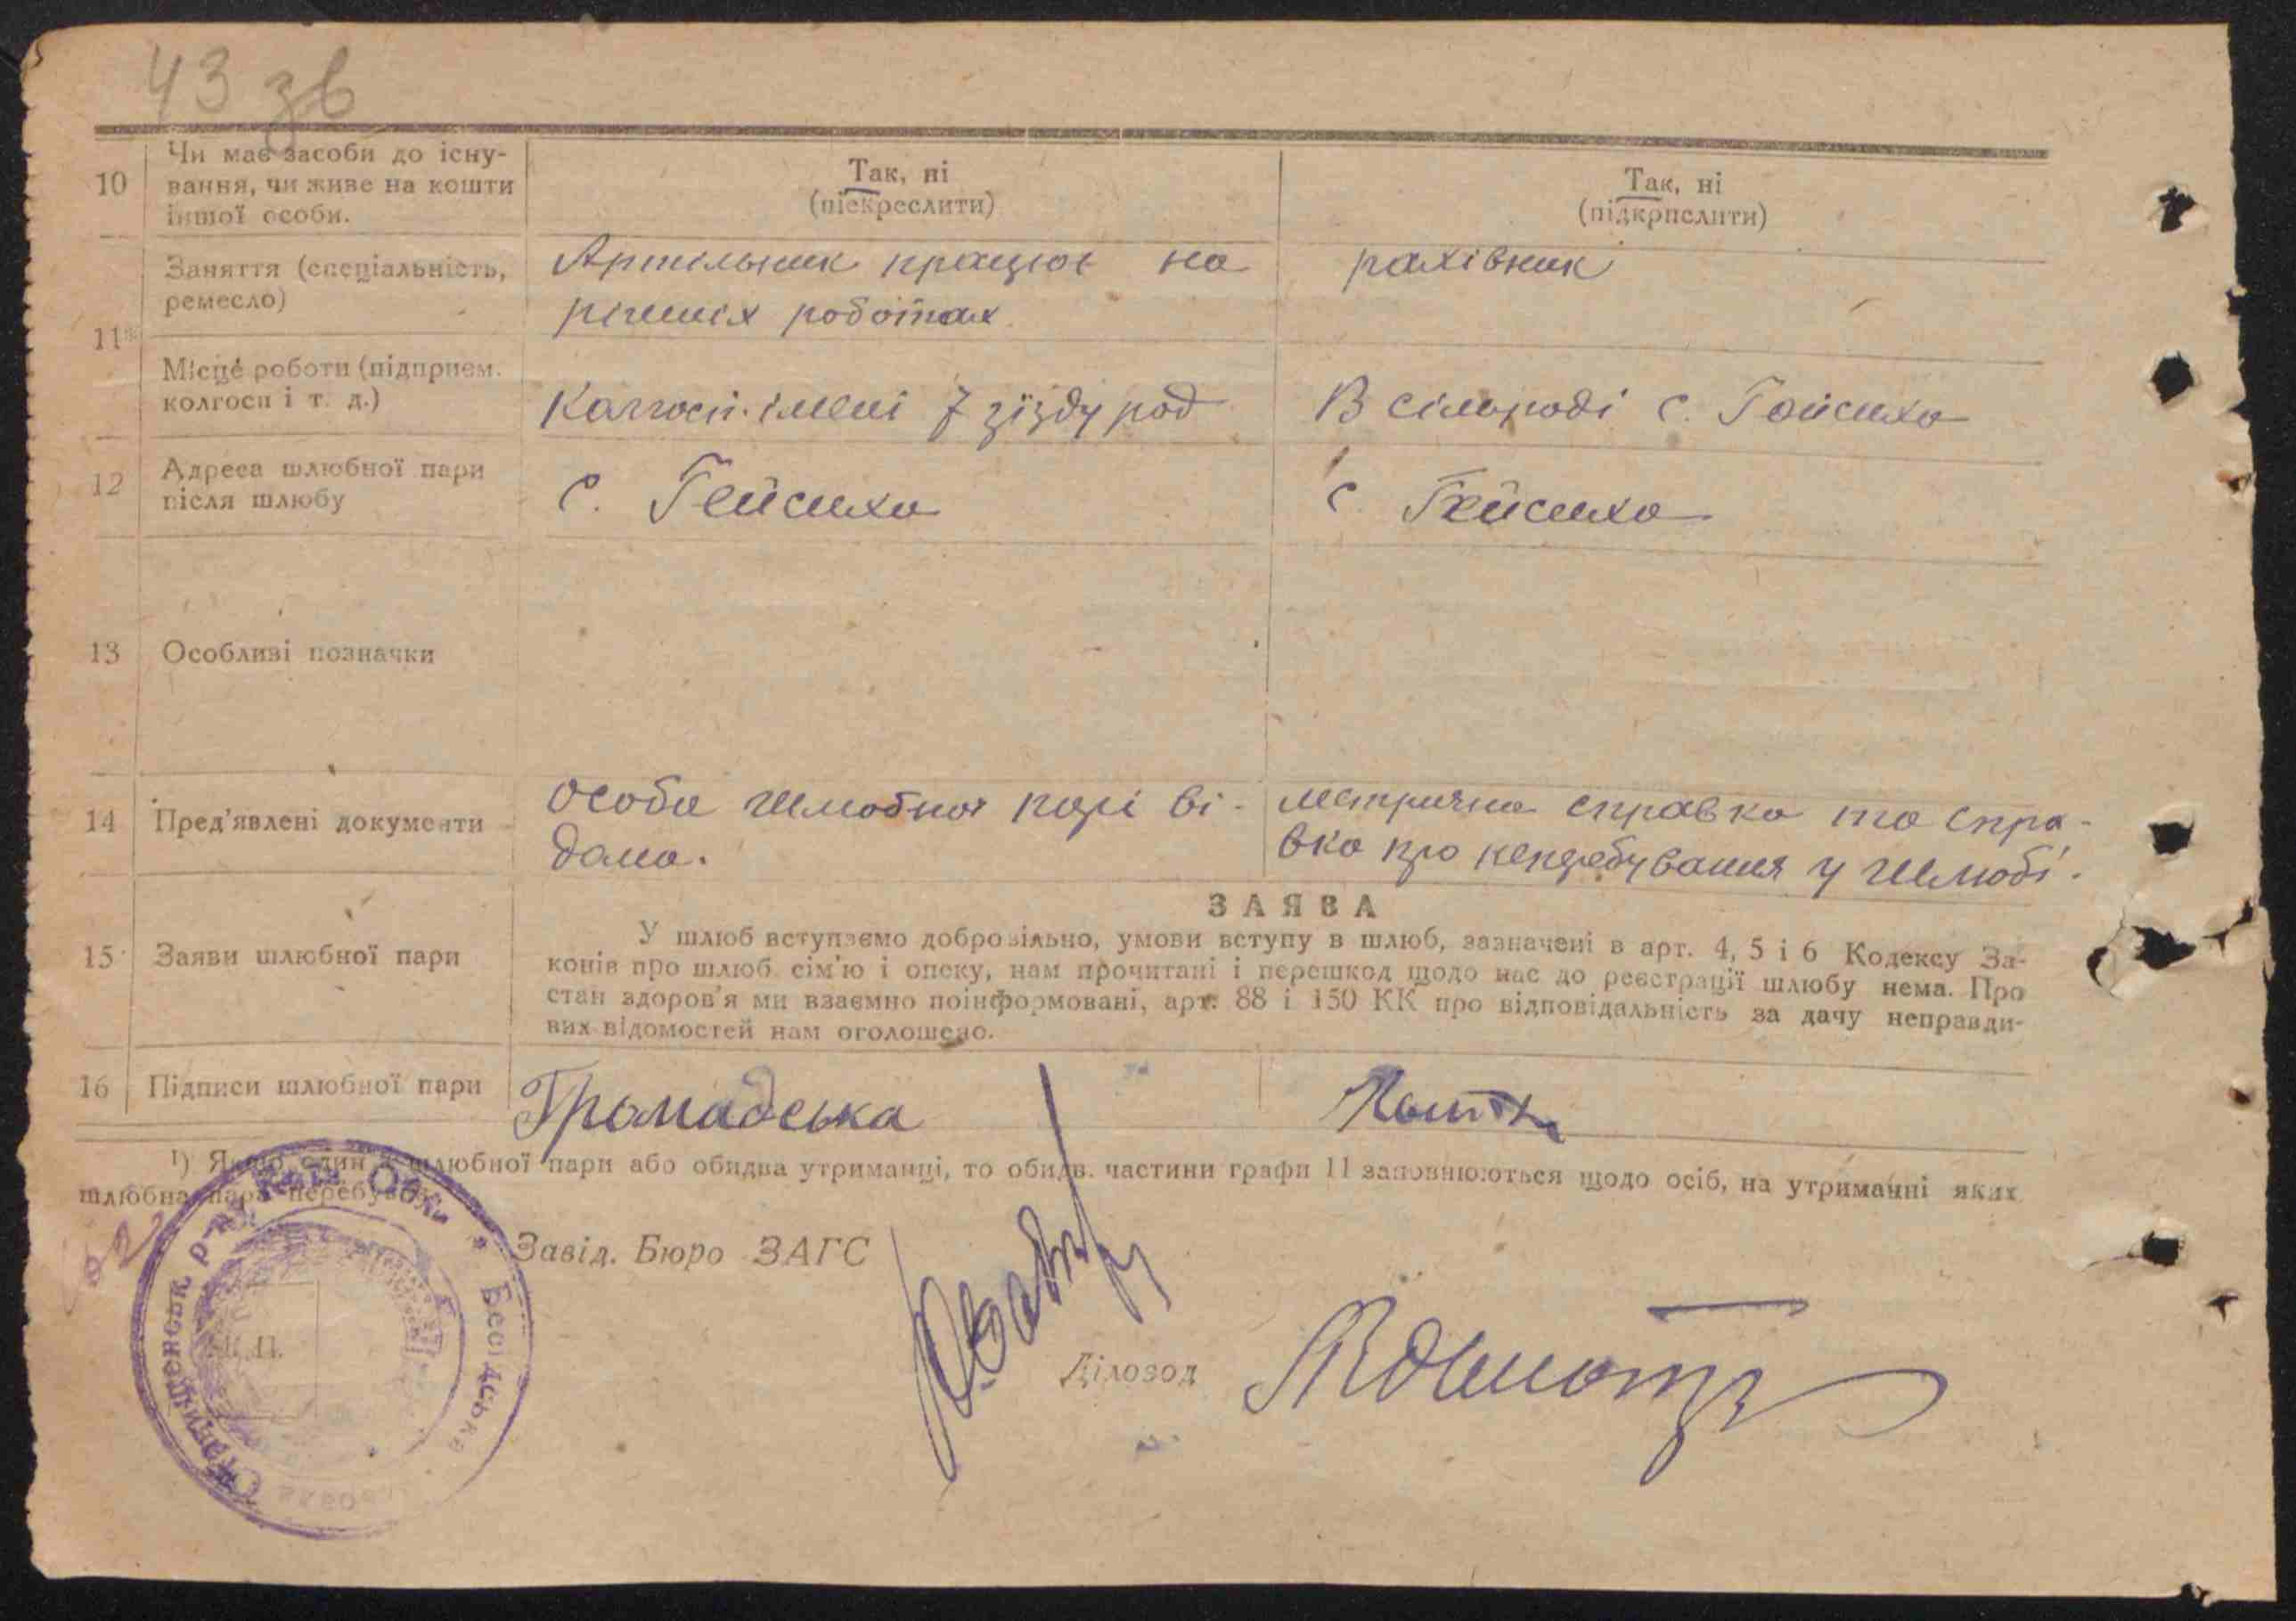 43 зв
10 Чи має засоби до існу-
вання, чи живе на кошти
іншої особи.
Так, ні
(підкреслити)
Так, ні
(підкрислити)
11
Заняття (спеціальність,
ремесло)
Артільник працює на
рі́зних роботах
рахівник
Місце роботи (підприєм.
колгосп і т. д.)
Колгосп. імені 7 зїзду рад
В сільраді с. Гейсиха
12 Адреса шлюбної пари
після шлюбу
с. Гейсиха
с. Гейсиха
13 Особливі позначки
14 Пред'явлені документи
Особа шлюбної парі ві-
дома.
метрична справка та спра-
вка про неперебування у шлюбі.
ЗАЯВА
15 Заяви шлюбної пари
У шлюб вступаємо добровільно, умови вступу в шлюб, зазначені в арт. 4, 5 і 6 Кодексу За-
конів про шлюб сім'ю і опеку, нам прочитані і перешкод щодо нас до реєстрації шлюбу нема. Про
стан здоров'я ми взаємно поінформовані, арт. 88 і 150 КК про відповідальність за дачу неправди-
вих відомостей нам оголошено.
16 Підписи шлюбної пари
Громадська
¹) Якщо один з шлюбної пари або обидва утриманці, то обидв. частини графи 11 заповнюються щодо осіб, на утриманні яких
шлюбна пара перебуває.
Завід. Бюро ЗАГС
Діловод
М. П.